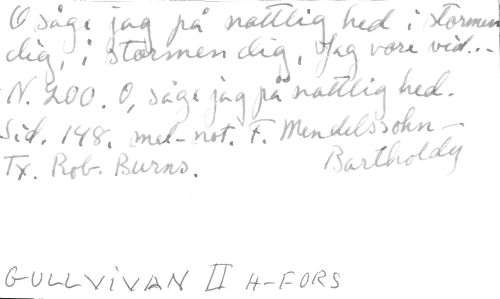 O såge jag på nattlig hed i stormen
dig, i stormen dig, Jag vore vid...
N. 200. O, såge jag på nattlig hed.
Sid. 148. mel-not. F. Mendelssohn-
Bartholdy
Tx. Rob. Burns.
GULLVIVAN II H-FORS